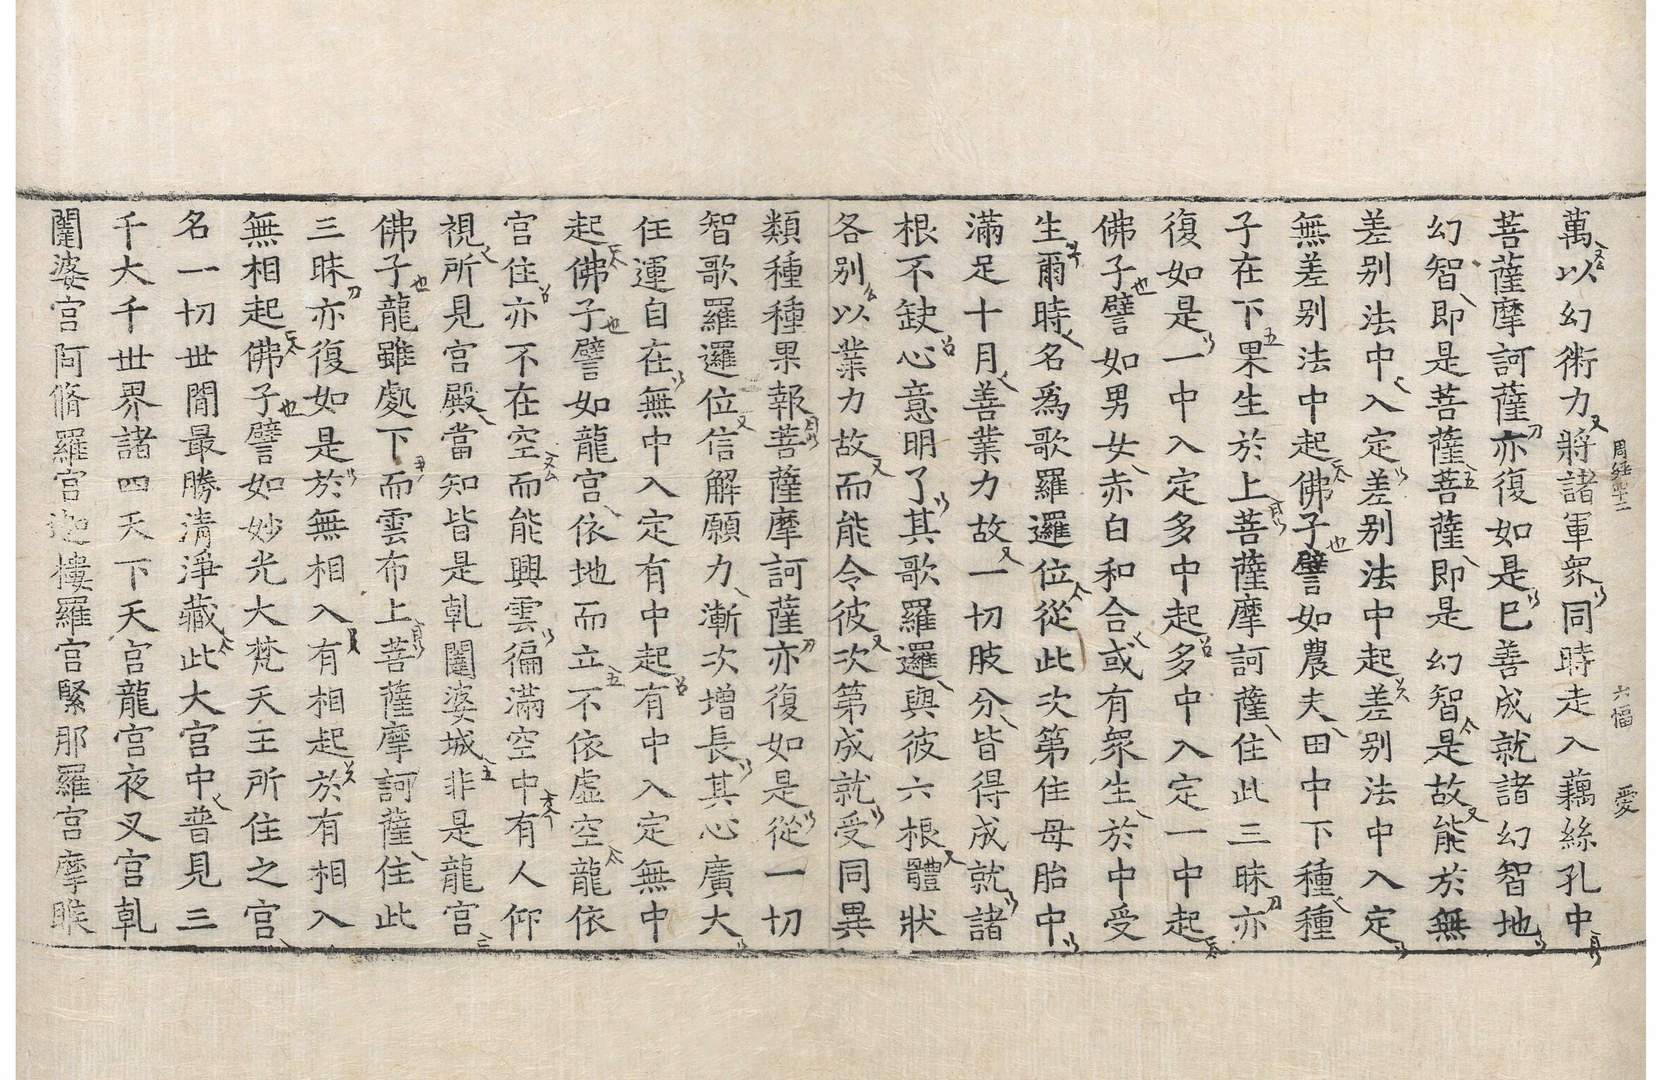 周經 六 愛
萬以幻術力將諸軍衆同時走入藕絲孔中
菩薩摩訶薩亦復如是已善成就諸幻智地
幻智即是菩薩菩薩即是幻智是故能於無
差別法中入定差別法中起差別法中入定
無差別法中起佛子譬如農夫田中下種種
子在下果生於上菩薩摩訶薩住此三昧亦
復如是一中入定多中起多中入定一中起
佛子譬如男女赤白和合或有衆生於中受
生爾時名爲歌羅邏位從此次第住母胎中
滿足十月善業力故一切肢分皆得成就諸
根不缺心意明了其歌羅邏與彼六根體狀
各別以業力故而能令彼次第成就受同異
類種種果報菩薩摩訶薩亦復如是從一切
智歌羅邏位信解願力漸次增長其心廣大
任運自在無中入定有中起有中入定無中
起佛子譬如龍宮依地而立不依虛空龍依
宮住亦不在空而能興雲徧滿空中有人仰
視所見宮殿當知皆是乹闥婆城非是龍宮
佛子龍雖處下而雲布上菩薩摩訶薩住此
三昧亦復如是於無相入有相起於有相入
無相起佛子譬如妙光大梵天王所住之宮
名一切世間最勝清淨藏此大宮中普見三
千大千世界諸四天下天宮龍宮夜叉宮乹
闥婆宮阿脩羅宮迦樓羅宮緊那羅宮摩睺